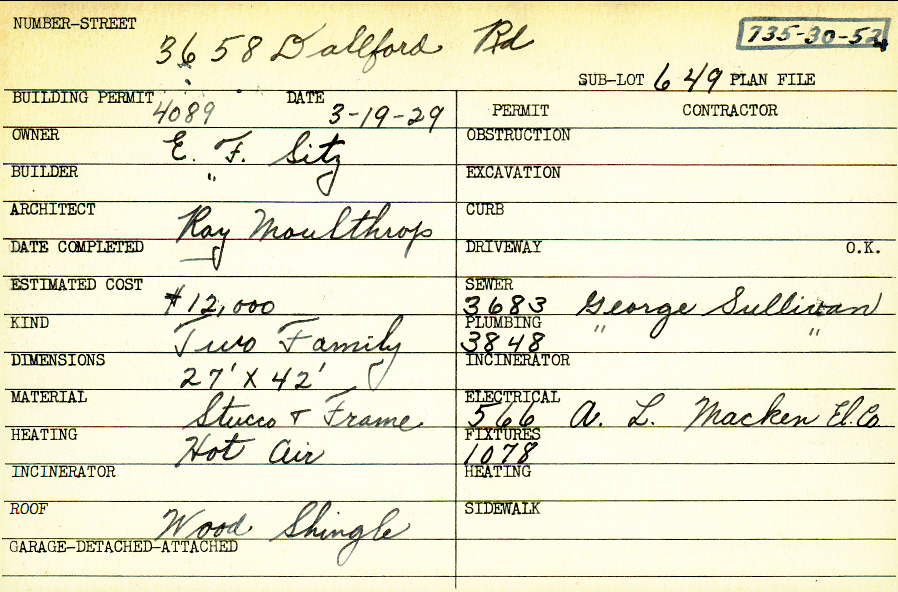 NUMBER-STREET
3658 Dallford Rd
735-30-52
SUB-LOT 649 PLAN FILE
BUILDING PERMIT 4089 DATE 3-19-29
OWNER E. F. Sitz
BUILDER "
ARCHITECT Ray Moulthrop
DATE COMPLETED
ESTIMATED COST $12,000
KIND Two Family
DIMENSIONS 27' X 42'
MATERIAL Stucco & Frame
HEATING Hot Air
INCINERATOR
ROOF Wood Shingle
GARAGE-DETACHED-ATTACHED
PERMIT CONTRACTOR
OBSTRUCTION
EXCAVATION
CURB
DRIVEWAY O.K.
SEWER
3683 George Sullivan
PLUMBING
3848 " "
INCINERATOR
ELECTRICAL
566 A. L. Macken El. Co.
FIXTURES
1078
HEATING
SIDEWALK